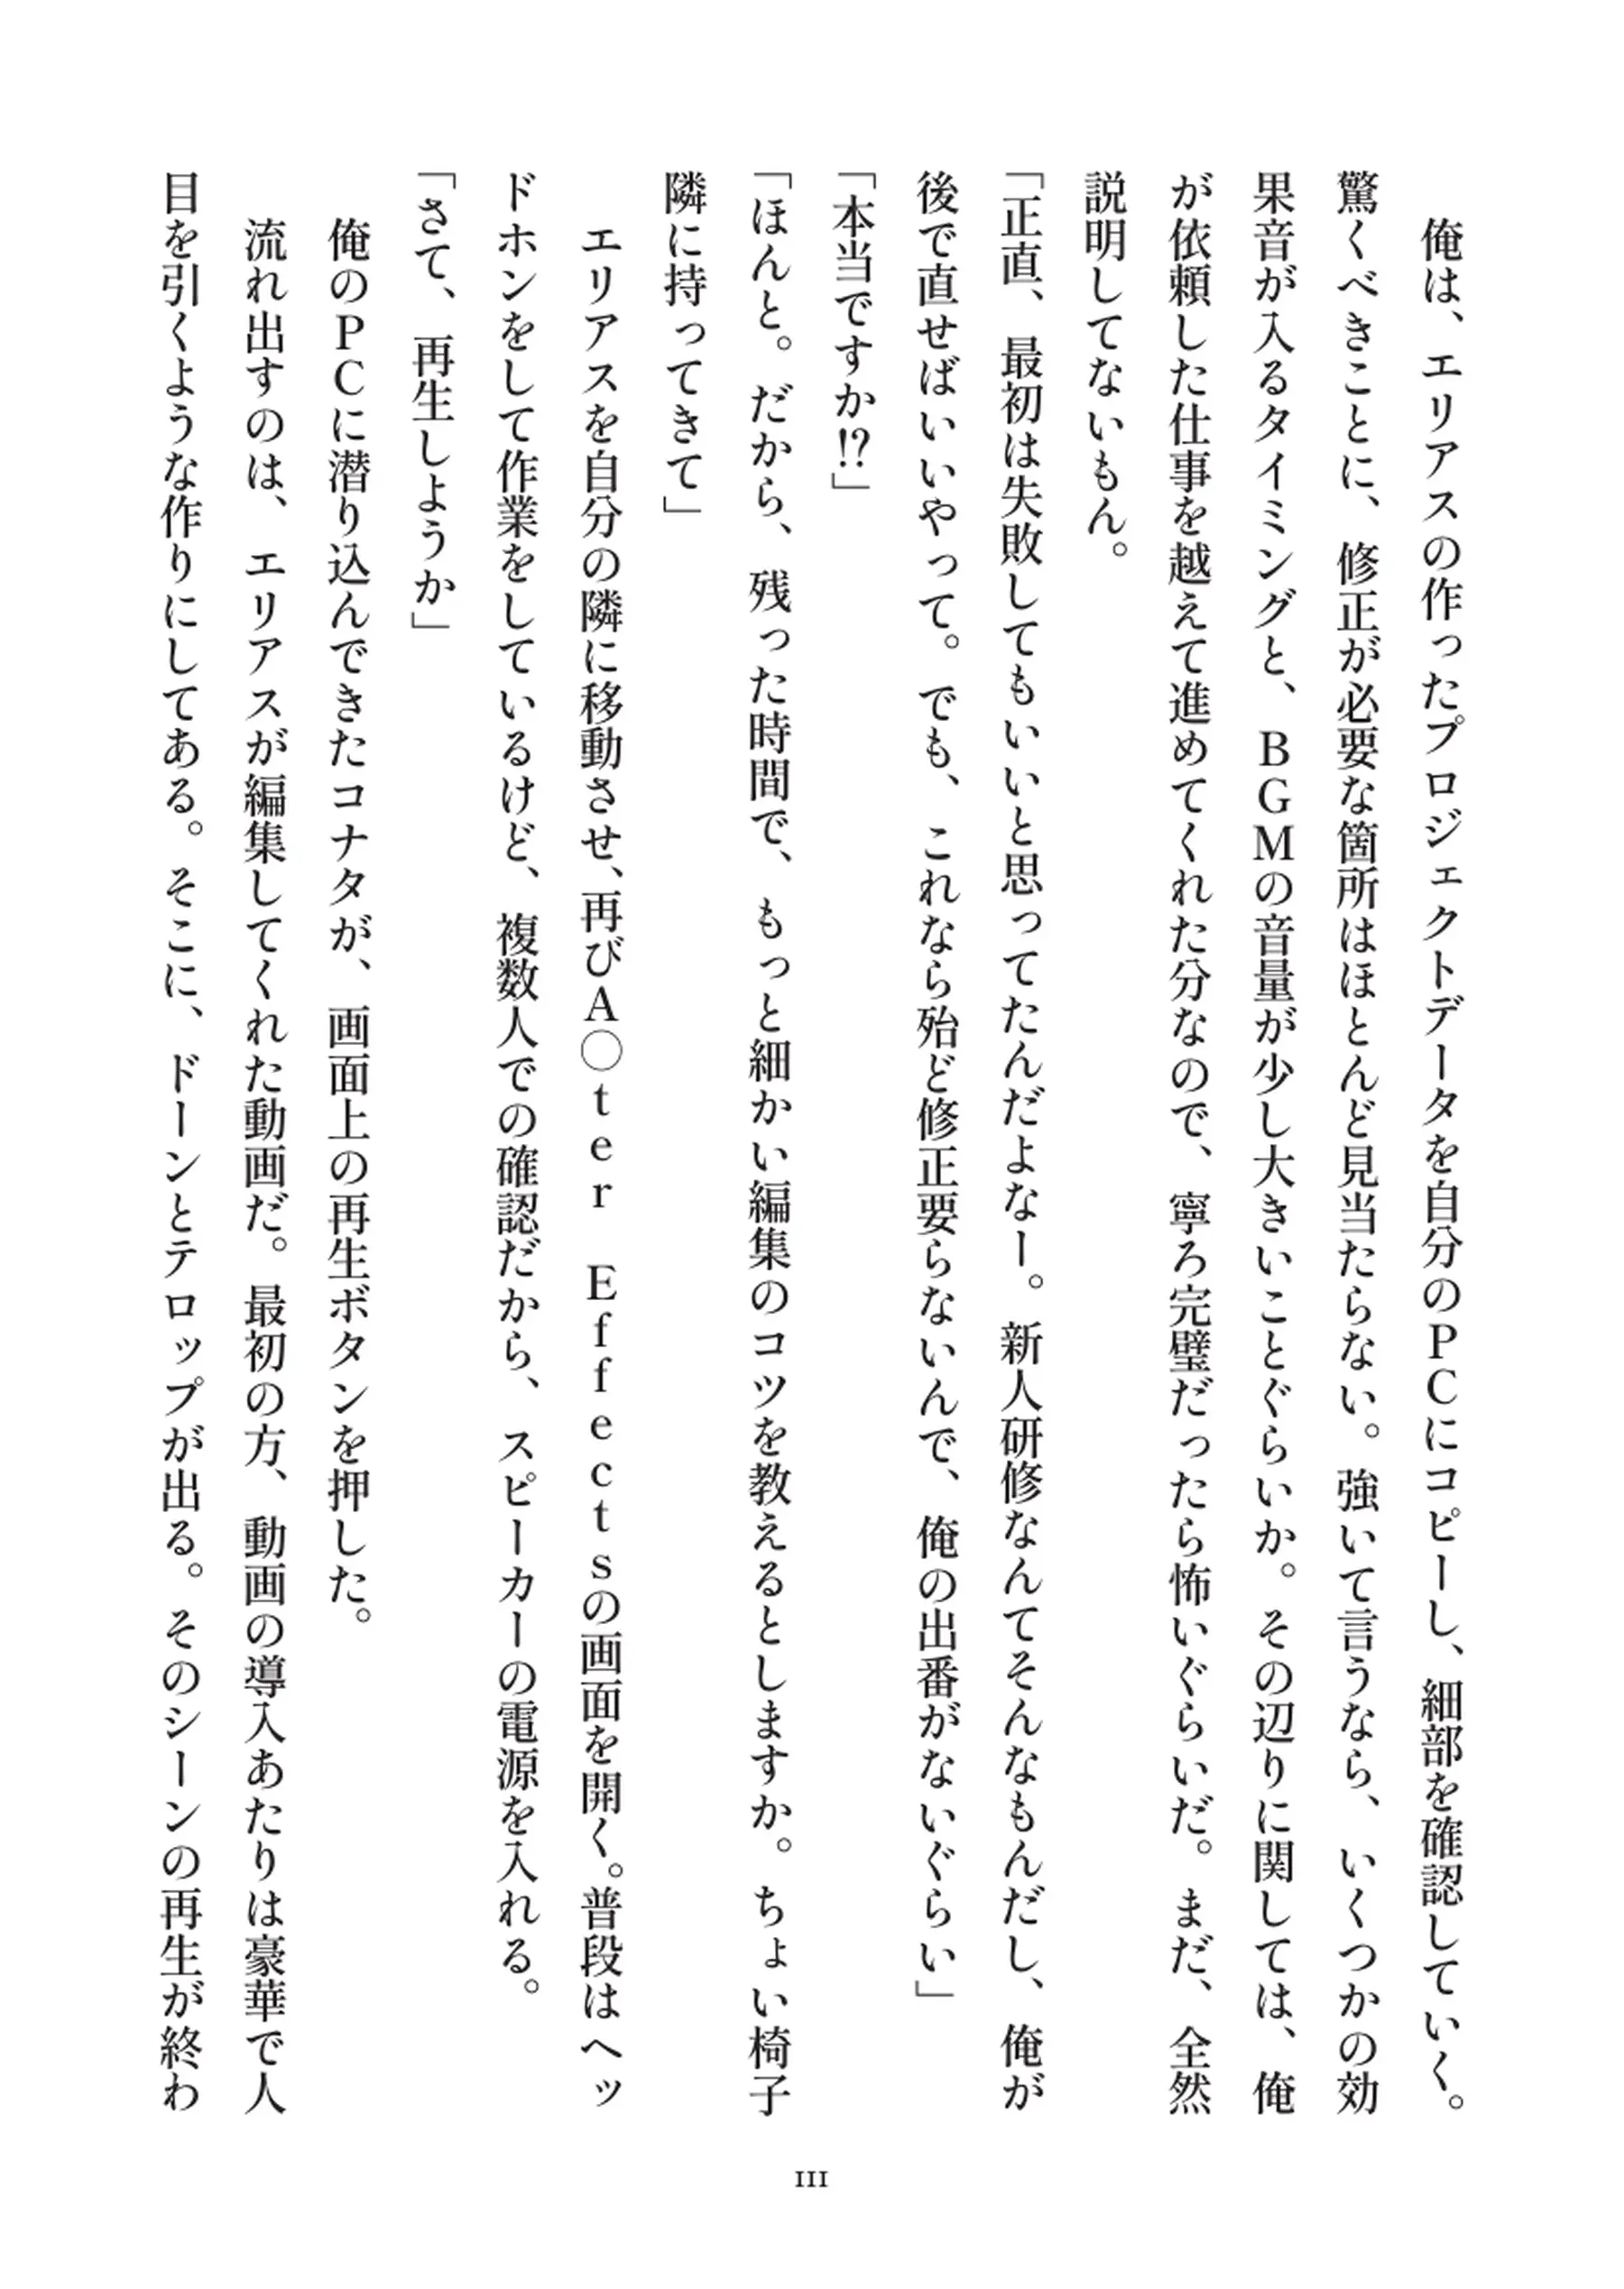 俺は、エリアスの作ったプロジェクトデータを自分のPCにコピーし、細部を確認していく。
驚くべきことに、修正が必要な箇所はほとんど見当たらない。強いて言うなら、いくつかの効
果音が入るタイミングと、BGMの音量が少し大きいことぐらいか。その辺りに関しては、俺
が依頼した仕事を越えて進めてくれた分なので、寧ろ完璧だったら怖いぐらいだ。まだ、全然
説明してないもん。
「正直、最初は失敗してもいいと思ってたんだよなー。新人研修なんてそんなもんだし、俺が
後で直せばいいやって。でも、これなら殆ど修正要らないんで、俺の出番がないぐらい」
「本当ですか!?」
「ほんと。だから、残った時間で、もっと細かい編集のコツを教えるとしますか。ちょい椅子
隣に持ってきて」
　エリアスを自分の隣に移動させ、再びA◯ter Effectsの画面を開く。普段はヘッ
ドホンをして作業をしているけど、複数人での確認だから、スピーカーの電源を入れる。
「さて、再生しようか」
　俺のPCに潜り込んできたコナタが、画面上の再生ボタンを押した。
　流れ出すのは、エリアスが編集してくれた動画だ。最初の方、動画の導入あたりは豪華で人
目を引くような作りにしてある。そこに、ドーンとテロップが出る。そのシーンの再生が終わ
111